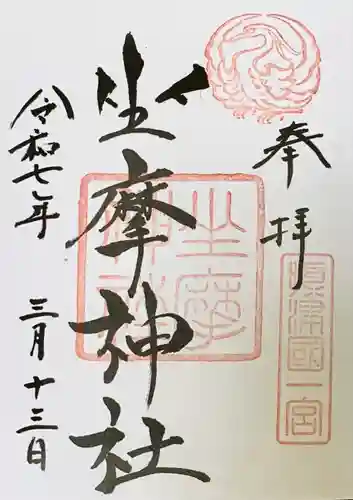 奉拝
摂津國一宮
坐摩神社
坐摩神社
令和七年 三月十三日